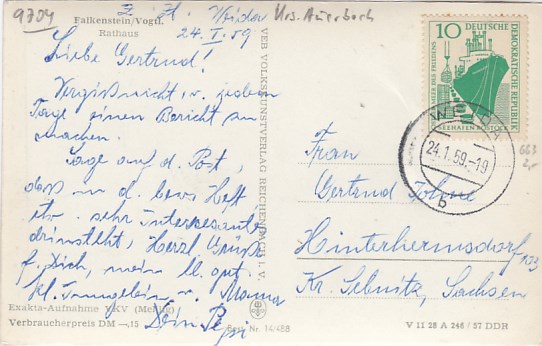 9704
Falkenstein/Vogtl.
Rathaus
24. I. 59
Liebe Gertrud!
Vergiß nicht, v. jedem
Tage einen Bericht zu
machen.
Sage auf d. Post,
daß in d. Heft
etw. sehr Interessantes
drinsteht, Herzl. Grüße
f. Dich, mein lb. gt.
u. Mamma
Dein
Exakta-Aufnahme VKV
Verbraucherpreis DM —,15
Best. Nr. 14/488
VEB VOLKSKUNSTVERLAG REICHENBACH I. V.
Krs. Auerbach
10 DEUTSCHE
DEMOKRATISCHE REPUBLIK
MEER DES FRIEDENS
SEEHAFEN ROSTOCK
24.1.59.-19
b
663
Frau
Gertrud
Hinterhermsdorf
Kr. Sebnitz, Sachsen
V 11 28 A 246 / 57 DDR